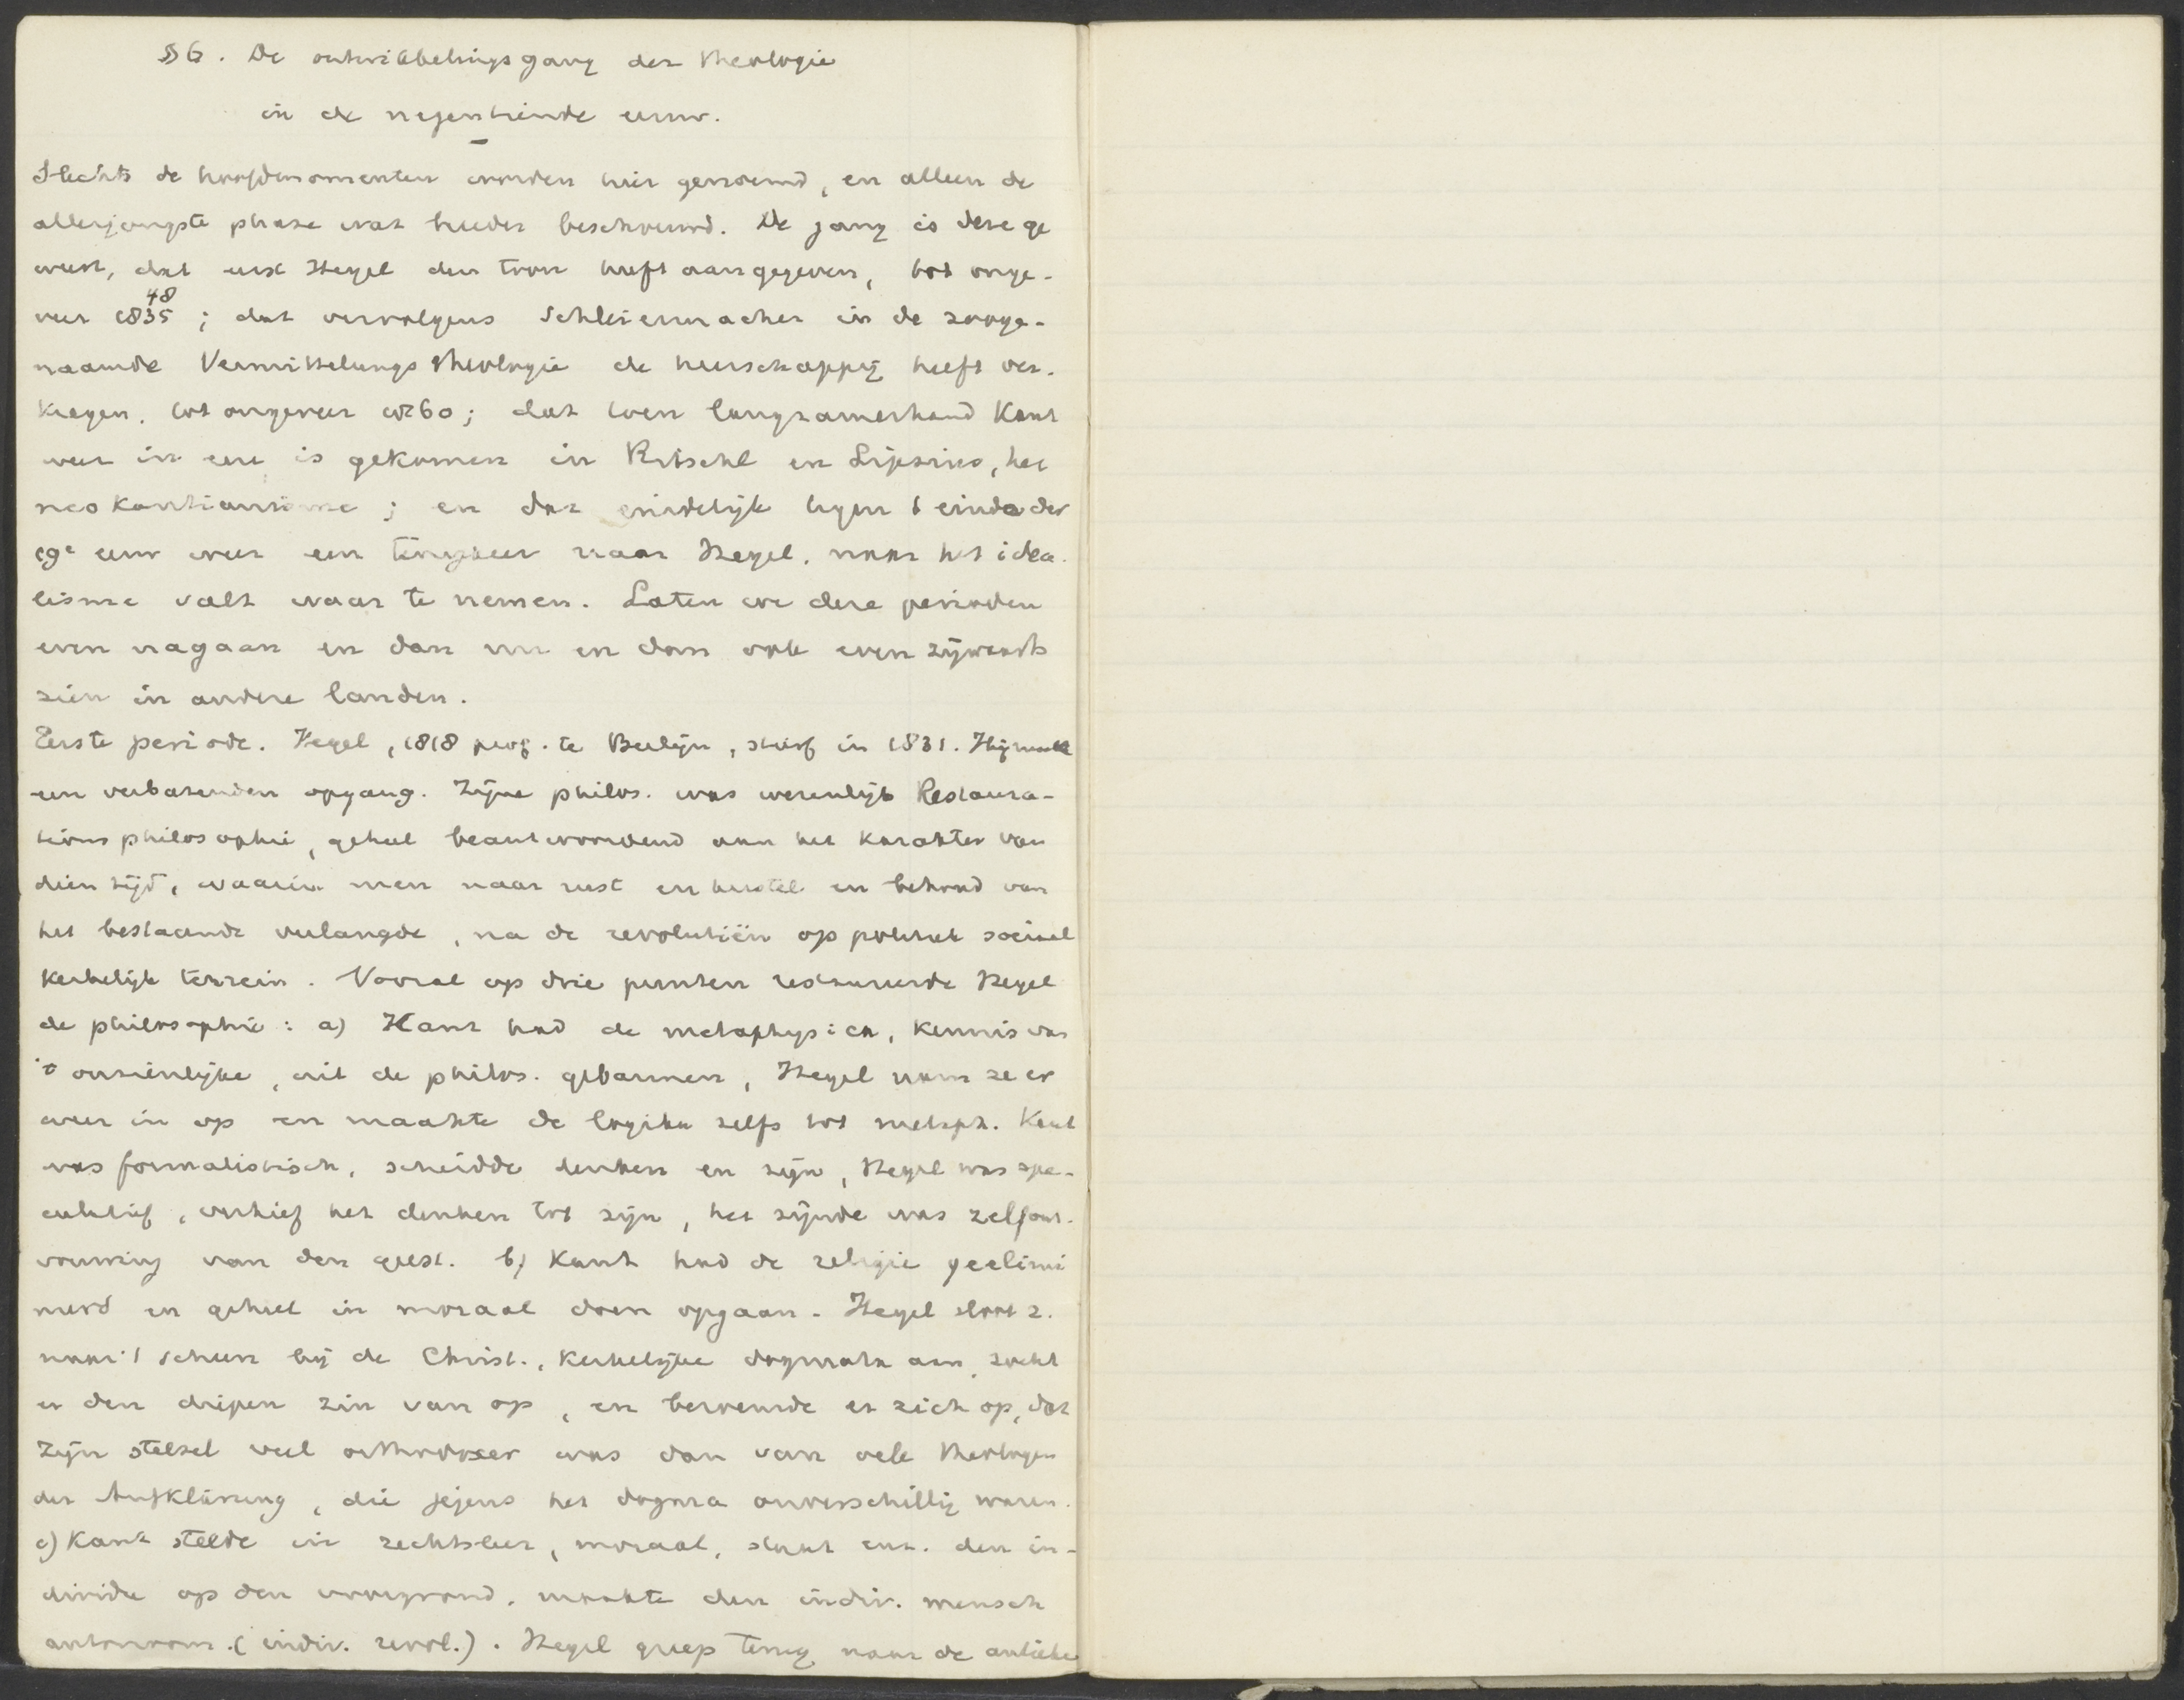 § 6. De ontwikkelingsgang der theologie
in de negentiende eeuw.
Slechts de hoofdmomenten worden hier genoemd, en alleen de
allerjongste phase wat breeder beschouwd. De gang is deze ge
weest, dat eerst Hegel den toon heeft aangegeven, tot onge-
veer 1835 48; dat vervolgens Schleiermacher in de zooge-
naamde Vermittelungstheologie de heerschappij heeft ver-
kregen, tot ongeveer 1860; dat toen langzamerhand Kant
weer in eere is gekomen in Ritschl en Lipsius, het
neokantianisme; en dat eindelijk tegen 't einde der
19e eeuw weer een terugkeer naar Hegel, naar het idea-
lisme valt waar te nemen. Laten we deze perioden
even nagaan en dan nu en dan ook even zijwaarts
zien in andere landen.
Eerste periode. Hegel, 1818 prof. te Berlijn, stierf in 1831. Hij maakte
een verbazenden opgang. Zijne philos. was wezenlijk Restaura-
tionsphilosophie, geheel beantwoordend aan het karakter van
dien tijd, waarin men naar rust en herstel en behoud van
het bestaande verlangde, na de revolutiën op politiek sociaal
kerkelijk terrein. Vooral op drie punten restaureerde Hegel
de philosophie: a) Kant had de metaphysica, kennis van
't onzienlijke, uit de philos. gebannen, Hegel nam ze er
weer in op en maakte de logika zelfs tot metaph. Kant
was formalistisch, scheidde denken en zijn, Hegel was spe-
culatief, verhief het denken tot zijn, het zijnde was zelfont-
vouwing van den geest. b) Kant had de religie geelimi
neerd en geheel in moraal doen opgaan. Hegel sloot z.
naar 't scheen bij de Christ., kerkelijke dogmata aan, zocht
er den diepen zin van op, en beroemde er zich op, dat
zijn stelsel veel orthodoxer was dan van vele theologen
der Aufklärung, die jegens het dogma onverschillig waren.
c) Kant stelde in rechtsleer, moraal, staat enz. den in-
dividu op den voorgrond, maakte den indiv. mensch
autonoom. (indiv. revol.). Hegel greep terug naar de antieke